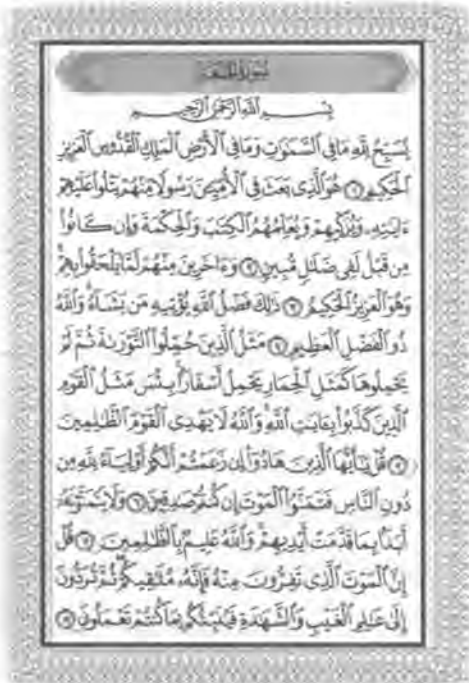 سُورَةُ الجُمُعَةِ
بِسْمِ ٱللَّهِ ٱلرَّحْمَٰنِ ٱلرَّحِيمِ
يُسَبِّحُ لِلَّهِ مَا فِي ٱلسَّمَٰوَٰتِ وَمَا فِي ٱلْأَرْضِ ٱلْمَلِكِ ٱلْقُدُّوسِ ٱلْعَزِيزِ
ٱلْحَكِيمِ ١ هُوَ ٱلَّذِي بَعَثَ فِي ٱلْأُمِّيِّـۧنَ رَسُولًا مِّنْهُمْ يَتْلُوا۟ عَلَيْهِمْ
ءَايَٰتِهِۦ وَيُزَكِّيهِمْ وَيُعَلِّمُهُمُ ٱلْكِتَٰبَ وَٱلْحِكْمَةَ وَإِن كَانُوا۟
مِن قَبْلُ لَفِي ضَلَٰلٍ مُّبِينٍ ٢ وَءَاخَرِينَ مِنْهُمْ لَمَّا يَلْحَقُوا۟ بِهِمْ
وَهُوَ ٱلْعَزِيزُ ٱلْحَكِيمُ ٣ ذَٰلِكَ فَضْلُ ٱللَّهِ يُؤْتِيهِ مَن يَشَآءُ وَٱللَّهُ
ذُو ٱلْفَضْلِ ٱلْعَظِيمِ ٤ مَثَلُ ٱلَّذِينَ حُمِّلُوا۟ ٱلتَّوْرَىٰةَ ثُمَّ لَمْ
يَحْمِلُوهَا كَمَثَلِ ٱلْحِمَارِ يَحْمِلُ أَسْفَارًۢا بِئْسَ مَثَلُ ٱلْقَوْمِ
ٱلَّذِينَ كَذَّبُوا۟ بِـَٔايَٰتِ ٱللَّهِ وَٱللَّهُ لَا يَهْدِي ٱلْقَوْمَ ٱلظَّٰلِمِينَ
٥ قُلْ يَٰٓأَيُّهَا ٱلَّذِينَ هَادُوٓا۟ إِن زَعَمْتُمْ أَنَّكُمْ أَوْلِيَآءُ لِلَّهِ مِن
دُونِ ٱلنَّاسِ فَتَمَنَّوُا۟ ٱلْمَوْتَ إِن كُنتُمْ صَٰدِقِينَ ٦ وَلَا يَتَمَنَّوْنَهُۥٓ
أَبَدًۢا بِمَا قَدَّمَتْ أَيْدِيهِمْ وَٱللَّهُ عَلِيمٌۢ بِٱلظَّٰلِمِينَ ٧ قُلْ
إِنَّ ٱلْمَوْتَ ٱلَّذِي تَفِرُّونَ مِنْهُ فَإِنَّهُۥ مُلَٰقِيكُمْ ثُمَّ تُرَدُّونَ
إِلَىٰ عَٰلِمِ ٱلْغَيْبِ وَٱلشَّهَٰدَةِ فَيُنَبِّئُكُم بِمَا كُنتُمْ تَعْمَلُونَ ٨